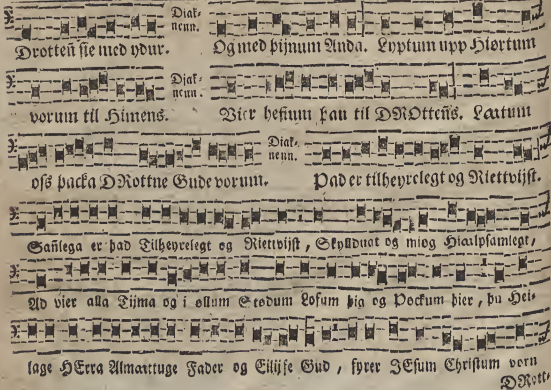 Diak- nenn.
Drotteñ sie med ydur. Og med þijnum Anda. Lyptum upp Hiørtum
Djak- nenn.
vorum til Himens. Vier hefium þau til DROtteñs. Lætum
Diak- nenn.
oss þacka DRottne Gude vorum. Það er tilheyrelegt og Riettvijst.
Sañlega er það Tilheyrelegt og Riettvijst, Skylldugt og miog Hialpsamlegt,
Ad vier alla Tijma og i ollum Stodum Lofum þig og Þockum þier, þu Hei-
lage HErra Almattuge Fader og Eilijfe Gud, fyrer JEsum Christum vorn
DRott-